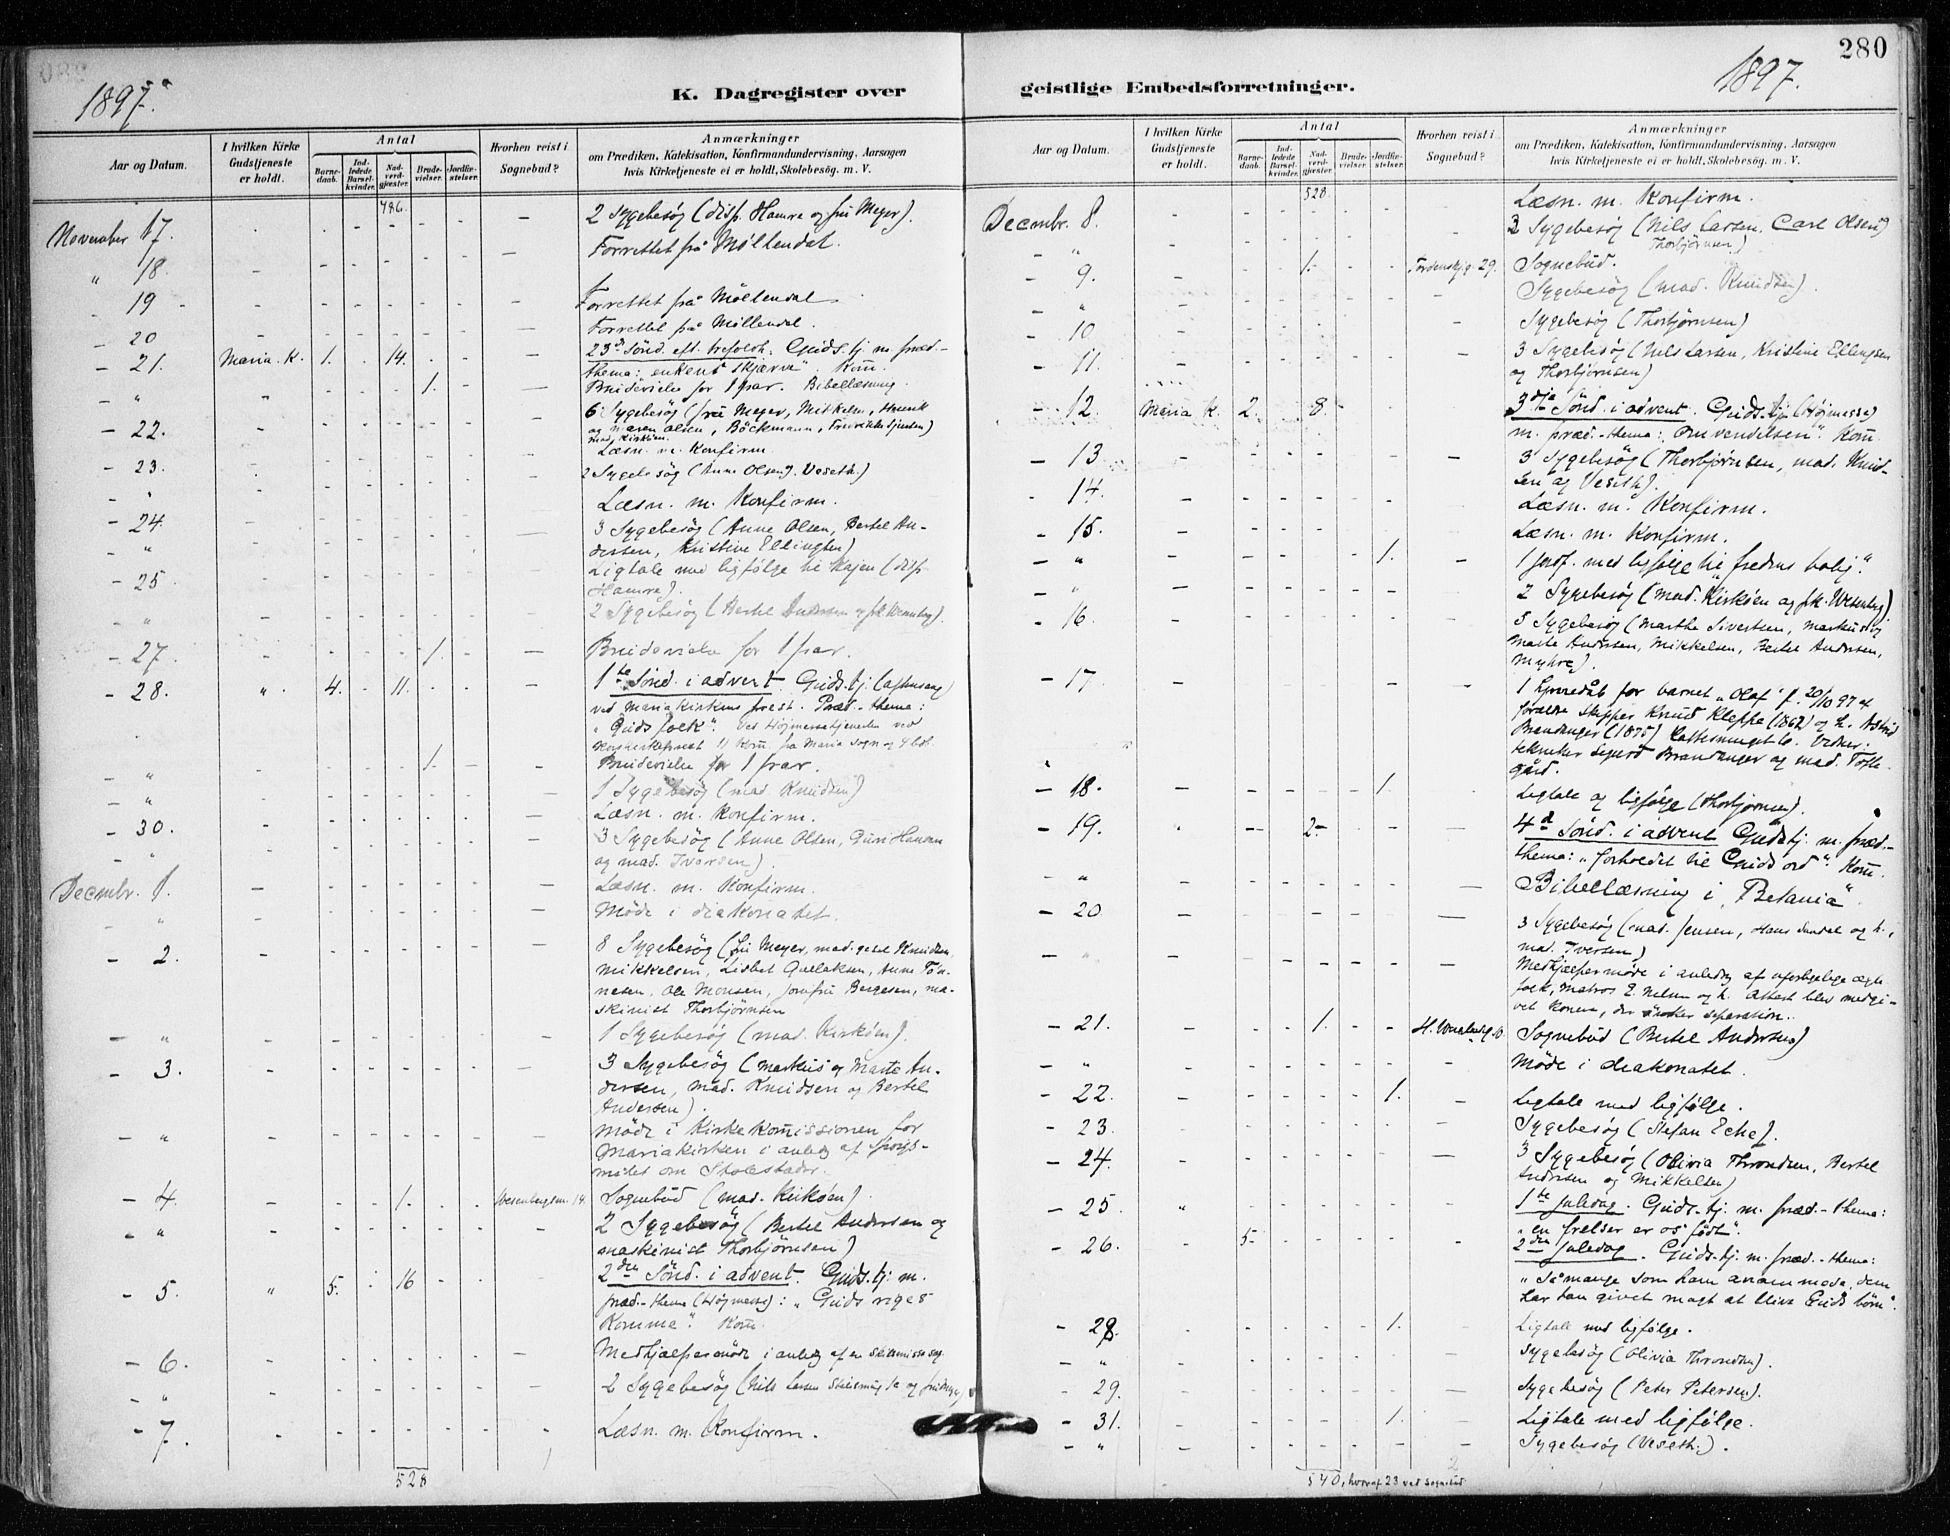 280
1897.
1897.
K. Dagregister over
geistlige Embedsforretninger.
Aar og Datum.
I hvilken Kirke Gudstjeneste er holdt.
Antal
Barne-daab.
Ind-ledede Barsel-kvinder.
Nad-verd-gjæster.
Brude-vielser.
Jordfæ-stelser.
Hvorhen reist i Sognebud?
Anmærkninger
om Prædiken, Katekisation, Konfirmandundervisning, Aarsagen
hvis Kirketjeneste ei er holdt, Skolebesøg. m. V.
486.
November 17. 2 Sygebesøg (disp. Hamre og fru Meyer).
" 18. Forrettet på Møllendal.
19 Forrettet på Møllendal
20 Forrettet på Møllendal.
21. Maria K. 1. 14. 23d Sönd. eft. trefoldh. Guds. tj. m. præd.-
thema: enkens skjærv". Kom.
" 1. Brudevielse for 1 par. Bibellæsning.
22. 6 Sygebesøg (fru Meyer, Mikkelsen, Henrik
og Maren Olsen, Böckmann,
mad. Kirköen.
23. Læsn. m. Konfirm.
" 2 Sygebesøg (Anne Olsen, Veseth.)
24. Læsn. m. Konfirm.
" 3 Sygebesøg (Anne Olsen, Bertel An-
dersen, Kristine Ellingsen)
25 Ligtale med ligfölge til kajen (disp.
Hamre).
" 2 Sygebesøg (Bertel Andersen
27. 1. Brudevielse for 1 par.
28. " 4. 11. 1te Sönd. i advent. Guds. tj. (aftensang)
ved Mariakirkens prest. Præd.-thema:
"Guds folk". Ved Højmessetjenesten ved
11 Kom. fra Maria sogn og
" 1. Brudevielse for 1 par.
" 1 Sygebesøg (mad. Knudsen)
30. Læsn. m. Konfirm.
" 3 Sygebesøg (Anne Olsen, Guri Hansen
og mad. Iversen).
Decmbr. 1. Læsn. m. Konfirm.
" Möde i diakonatet.
2. 8 Sygebesøg (fru Meyer, mad. Knudsen,
Mikkelsen, Lisbet, Anne Tön-
nesen, Ole Monsen, jomfru Bergesen, ma-
skinist Thorbjörnsen
" 1 Sygebesøg (mad. Kirköen).
3. 3 Sygebesøg (Markus og Marte An-
dersen, mad. Knudsen og Bertel
Andersen).
" Möde i Kirkekommissionen for
Mariakirken i anledn. af spörgs-
målet om Stolestader.
4 1. Wesenbergsm. 14. Sognebud (mad. Kirköen).
" 2 Sygebesøg (Bertel Andersen og
maskinist Thorbjörnsen)
5. " 5. 16 2den Sönd. i advent. Guds. tj. m.
præd.-thema (Højmesse): "Guds riges
Komme". Kom.
6. Medhjælpermöde i anledn. af en
" 2 Sygebesøg (Nils Larsen
7. Læsn. m. Konfirm.
528
Aar og Datum.
I hvilken Kirke Gudstjeneste er holdt.
Antal
Barne-daab.
Ind-ledede Barsel-kvinder.
Nad-verd-gjæster.
Brude-vielser.
Jordfæ-stelser.
Hvorhen reist i Sognebud?
Anmærkninger
om Prædiken, Katekisation, Konfirmandundervisning, Aarsagen
hvis Kirketjeneste ei er holdt, Skolebesøg. m. V.
528
Decmbr. 8. Læsn. m. Konfirm.
" 3 Sygebesøg (Nils Larsen, Carl Olsen,
Thorbjörnsen)
9. 1. Tordenskj.g. 29. Sognebud.
" Sygebesøg (mad. Knudsen).
10 Sygebesøg (Thorbjörnsen)
11. 3 Sygebesøg (Nils Larsen, Kristine Ellingsen
og Thorbjörnsen)
12. Maria K. 2. 8. 3dje Sönd. i advent. Guds. tj. (Højmesse)
m. præd.-thema: "Omvendelsen". Kom.
13. 3 Sygebesøg (Thorbjörnsen, mad. Knud-
sen og Veseth).
14. Læsn. m. Konfirm.
15. Læsn. m. Konfirm.
" 1. 1 Jordf. med ligfölge til "fredens bolig."
" 2 Sygebesøg (mad. Kirköen og frk. Wesenberg)
16. 5 Sygebesøg (Marthe Sivertsen, Markus og
Marte Andersen, Mikkelsen, Bertel Andersen,
Myhre).
17. 1 hjemedåb for barnet "Olaf" f. 20/10 97 af
forældre skipper Knud Kleppe (1862) og h. Astrid
Brandanger (1875)
tekniker Sigurd Brandanger og mad. Tofte-
gård.
18. 1. Ligtale og ligfölge (Thorbjörnsen).
19. " 2 4d Sönd. i advent Guds. tj. m. præd.-
thema: "forholdet til Guds ord". Kom.
" Bibellæsning i "Betania"
20 3 Sygebesøg (mad. Jensen, Hans og h.,
mad. Iversen)
" Medhjælpermöde i anledn. af uforligelige ægte-
folk, Matros E. Nilsen og h. Attest blev medgi-
vet konen, der önsker separation.
21. 1. Sognebud (Bertel Andersen)
" Möde i diakonatet.
22. 1. Ligtale med ligfölge.
23. Sygebesøg (Stefan
24. 3 Sygebesøg (Olivia Throndsen, Bertel
Andersen og Mikkelsen)
25. " 1te Juledag. Guds. tj. m. præd.-thema:
"en frelser er os födt".
26. " 5 2den Juledag. Guds. tj. m. præd.-thema:
"Så mange som ham annammede, dem
har han givet magt at blive Guds börn".
28. 1. Ligtale med ligfölge.
" Sygebesøg (Olivia Throndsen).
29. Sygebesøg (Peter Petersen).
31. 1. Ligtale med ligfölge.
" Sygebesøg (Veseth.).
540, hvoraf 23 ved sognebud